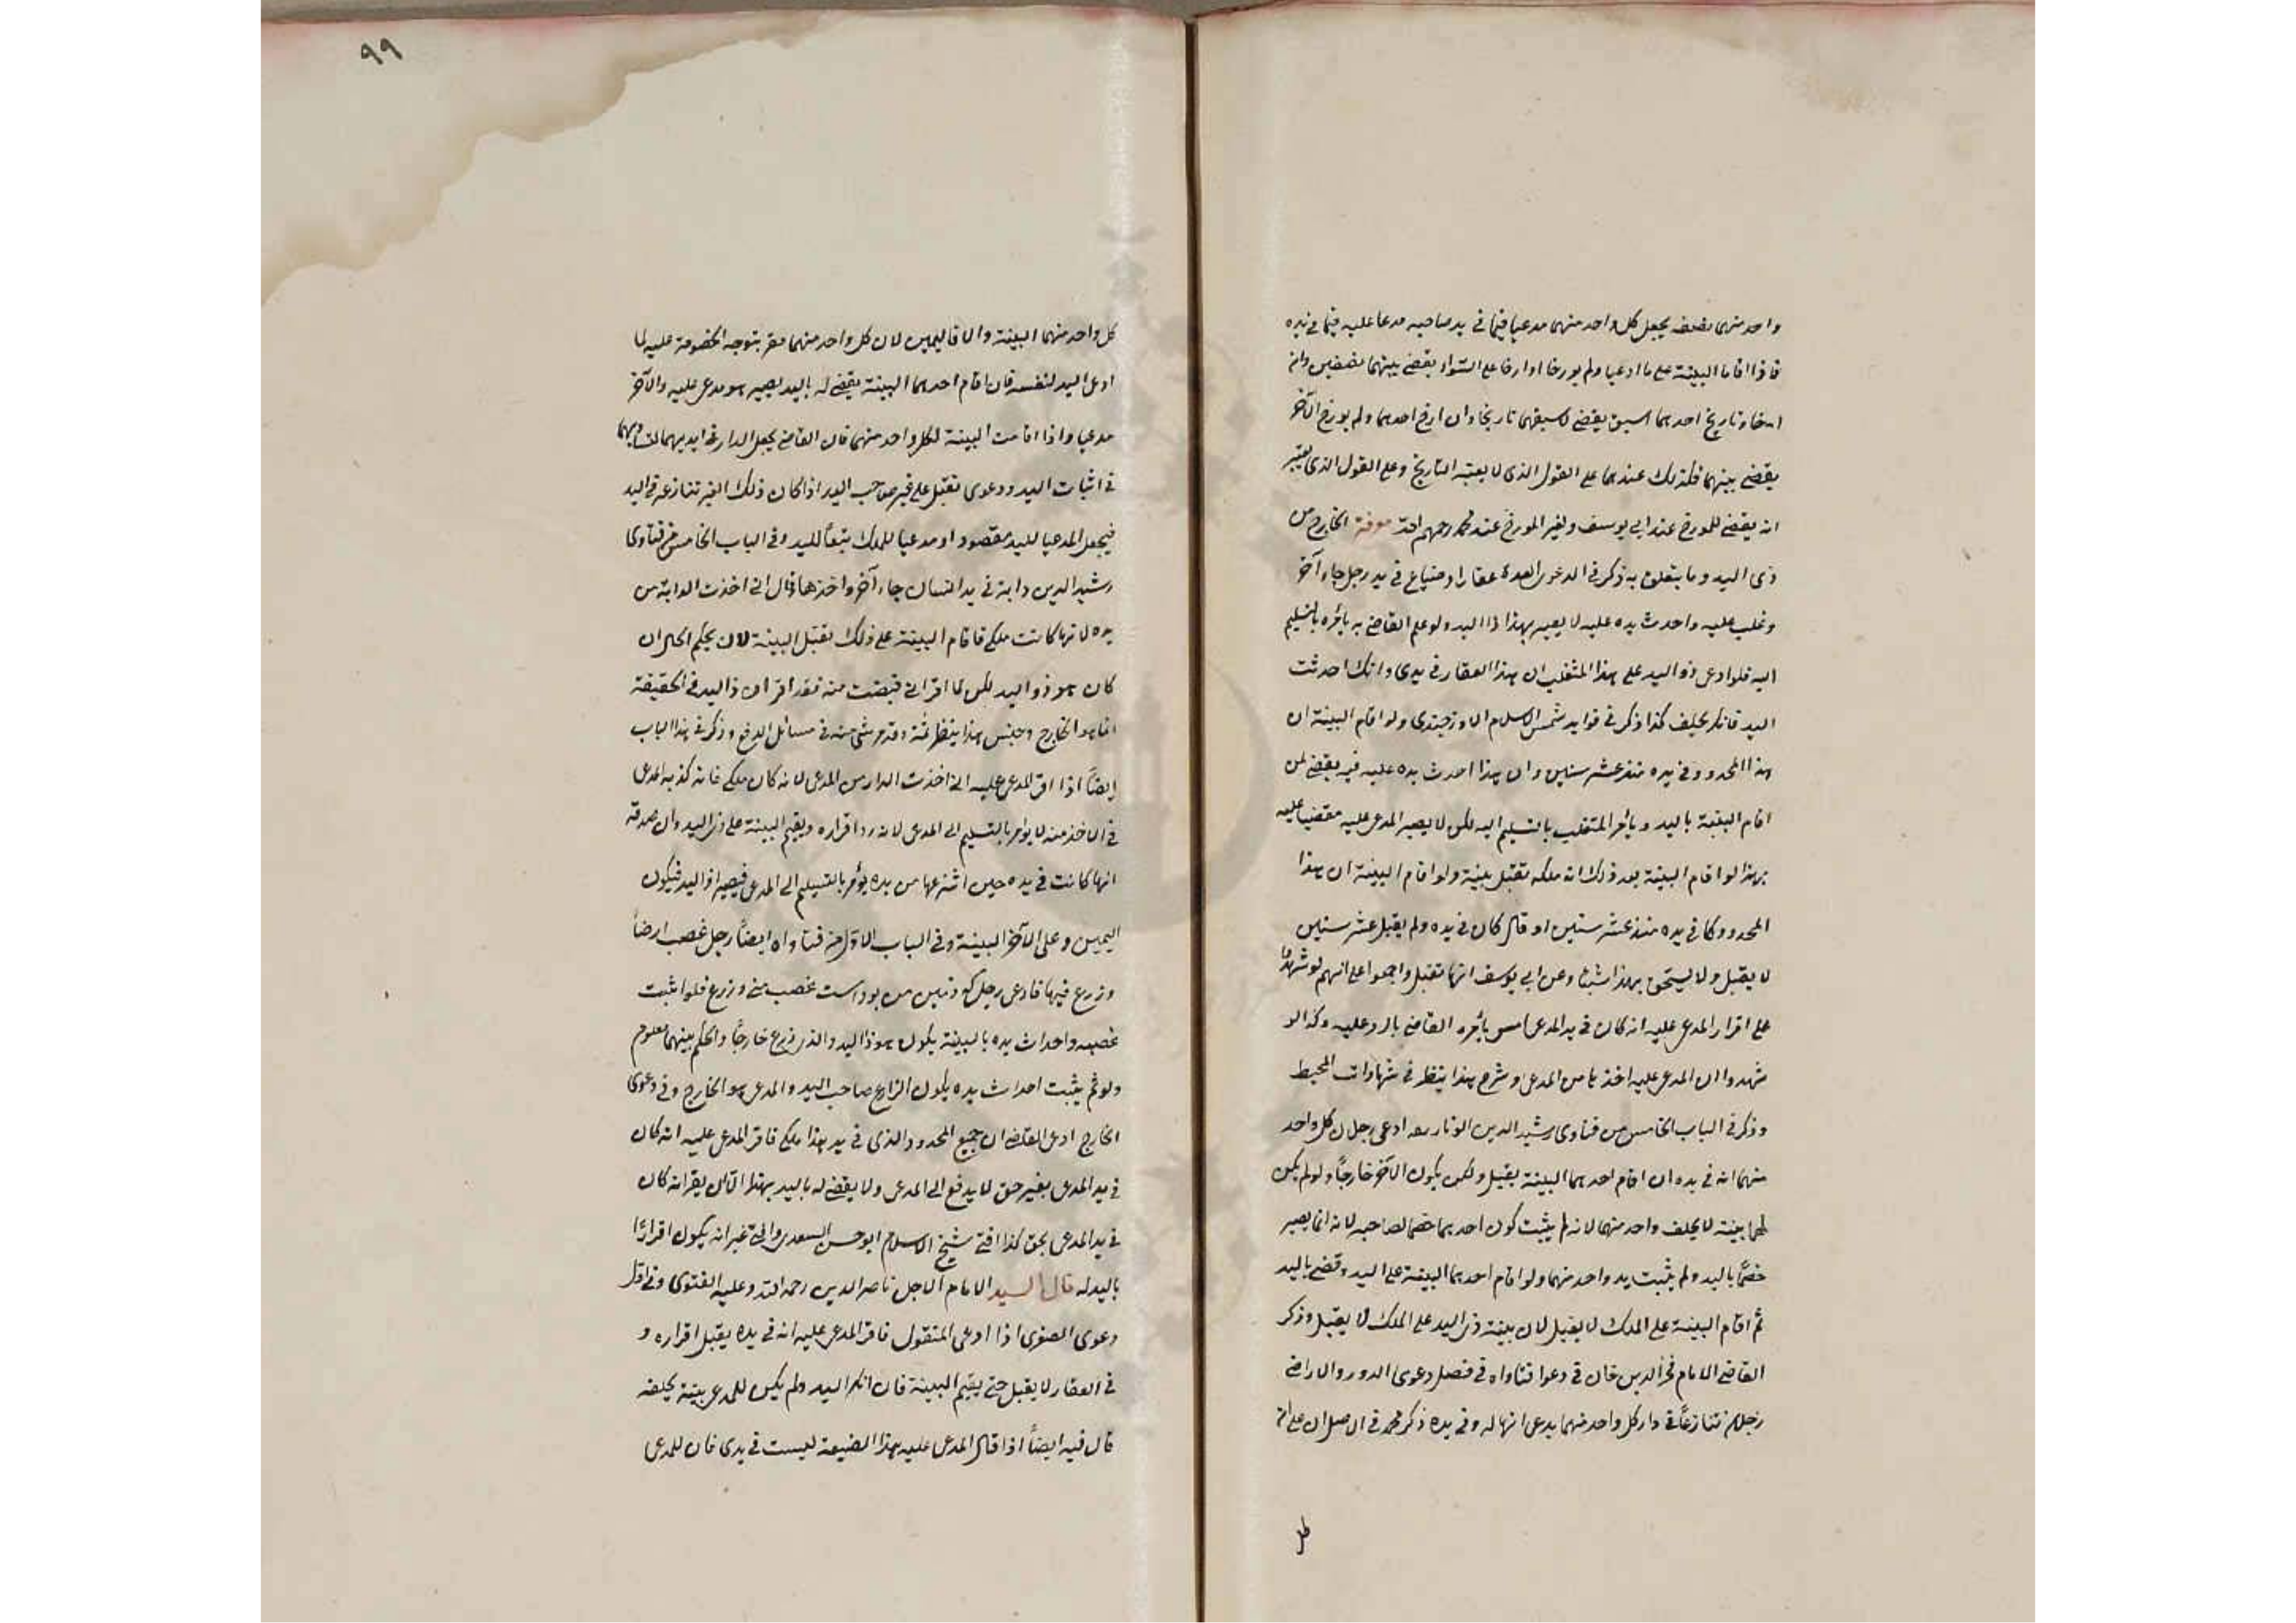 واحد منهما بنصف يجعل كل واحد منهما مدعيا فيما في يد صاحبه مدعا عليه فيما في يده
فاذا اقاما البينة على ما ادعيا ولم يورخا او ارخا على السواء يقضى بينهما نصفين وان
ارخا وتاريخ احدهما اسبق يقضى لاسبقهما تاريخا وان ارخ احدهما ولم يورخ الآخر
يقضى بينهما فكذلك عندهما على القول الذى لا يعتبر التاريخ وعلى القول الذى يعتبر
انه يقضى للمورخ عند ابي يوسف ولغير المورخ عند محمد رحمهم الله معرفة الخارج من
ذى اليد وما يتعلق به ذكر في الدعوى العدة عقار او ضياع في يد رجل جاء آخر
وغلب عليه واحدث يده عليه لا يصير بهذا ذا اليد ولو علم القاضى به يأمره بالتسليم
اليه فلو ادعى ذو اليد على هذا المتغلب ان هذا العقار في يدى وانك احدثت
اليد فانكر يحلف كذا ذكر في فوايد شمس الاسلام الاوزجندى ولو اقام البينة ان
هذا المحدود في يده منذ عشر سنين وان هذا احدث يده عليه فيه يقضى لمن
اقام البينة باليد ويأمر المتغلب بالتسليم اليه لكن لا يصير المدعى عليه مقضيا عليه
بهذا لو اقام البينة بعد ذلك انه ملكه تقبل بينة ولو اقام البينة ان هذا
المحدود كا في يده منذ عشر سنين او قال كان في يده ولم يقبل عشر سنين
لا يقبل ولا يستحق بهذا شيئا وعن ابي يوسف انها تقبل واجمعوا على انهم لو شهدوا
على اقرار المدعى عليه انه كان في يد المدعى امس يأمره القاضى بالرد عليه وكذا لو
شهدوا ان المدعى عليه اخذها من المدعى وشرح هذا ينظر في شهادات المحيط
وذكر في الباب الخامس من فتاوى رشيد الدين ادعى رجلان كل واحد
منهما انه في يده ان اقام احدهما البينة يقبل ولكن يكون الآخر خارجاً ولو لم يكن
لهما بينة لا يحلف واحد منهما لانه لم يثبت كون احدهما خصما لصاحبه لانه انما يصير
خصمًا باليد ولم يثبت يد واحد منهما ولو اقام احدهما البينة على اليد وقضى باليد
ثم اقام البينة على الملك لا يقبل لان بينة ذى اليد على الملك لا يقبل وذكر
القاضى الامام فخر الدين خان في دعوا فتاواه في فصل دعوى الدور والاراضى
رجلان تنازعاً في دار كل واحد منهما يدعى انها له وفي يده ذكر محمد في الاصل ان على
كل
٩٩
كل واحد منهما البينة والا فاليمين لان كل واحد منهما مقر بتوجه الخصومة عليه لما
ادعى اليد لنفسه فان اقام احدهما البينة يقضى له باليد يصير هو مدعى عليه والآخر
مدعيا واذا اقامت البينة لكل واحد منهما فان القاضى يجعل الدار في ايديهما لتساويهما
في اثبات اليد ودعوى تقبل على غير صاحب اليد اذا كان ذلك الغير تنازعه في اليد
فيجعل المدعيا لليد مقصودا ومدعيا للملك تبعاً لليد وفي الباب الخامس من فتاوى
رشيد الدين دابة في يد انسان جاء آخر واخذها وقال انى اخذت الدابة من
يده لانها كانت ملكى فاقام البينة على ذلك يقبل البينة لان بحكم الحال ان
كان هو ذو اليد لكن لما اقر انى قبضت منه فقد اقر ان ذا اليد في الحقيقة
انما هو الخارج وجنس هذا ينظر ثمة وقد مر شئ منه في مسائل الدفع وذكر في هذا الباب
ايضاً اذا اقر المدعى عليه انى اخذت الدار من المدعى لانه كان ملكى فانه كذبه المدعى
في الاخذ منه لا يؤمر بالتسليم الى المدعى لانه رد اقراره ويقيم البينة على ذى اليد وان صدقه
انها كانت في يده حين انتزعها من يده يؤمر بالتسليم الى المدعى فيصير ذا اليد فيكون
اليمين وعلى الآخر البينة وفي الباب الاول من فتاواه ايضاً رجل غصب ارضاً
وزرع فيها فادعى رجل كه زمين من بوداست غصب منى وزرع فلو اثبت
غصبه واحداث يده بالبينة يكون هو ذا اليد والذى زرع خارجًا والحكم بينهما معلوم
ولو لم يثبت احداث يده يكون الزارع صاحب اليد والمدعى هو الخارج وفي دعوى
الخارج ادعى القاضى ان جميع المحدود الذى في يد هذا ملكى فاقر المدعى عليه انه كان
في يد المدعى بغير حق لا يدفع الى المدعى ولا يقضى له باليد بهذا الا ان يقر انه كان
في يد المدعى بحق كذا افتى شيخ الاسلام ابو حسن السعدى والى غير انه يكون اقرارًا
باليد له قال السيد الامام الاجل ناصر الدين رحمه الله وعليه الفتوى وفي اول
دعوى الصغرى اذا ادعى المنقول فاقر المدعى عليه انه في يده يقبل اقراره و
في العقار لا يقبل حتى يقيم البينة فان انكر اليد ولم يكن للمدعى بينة يحلفه
قال فيه ايضاً اذا قال المدعى عليه هذا الضيعة ليست في يدى فان للمدعى